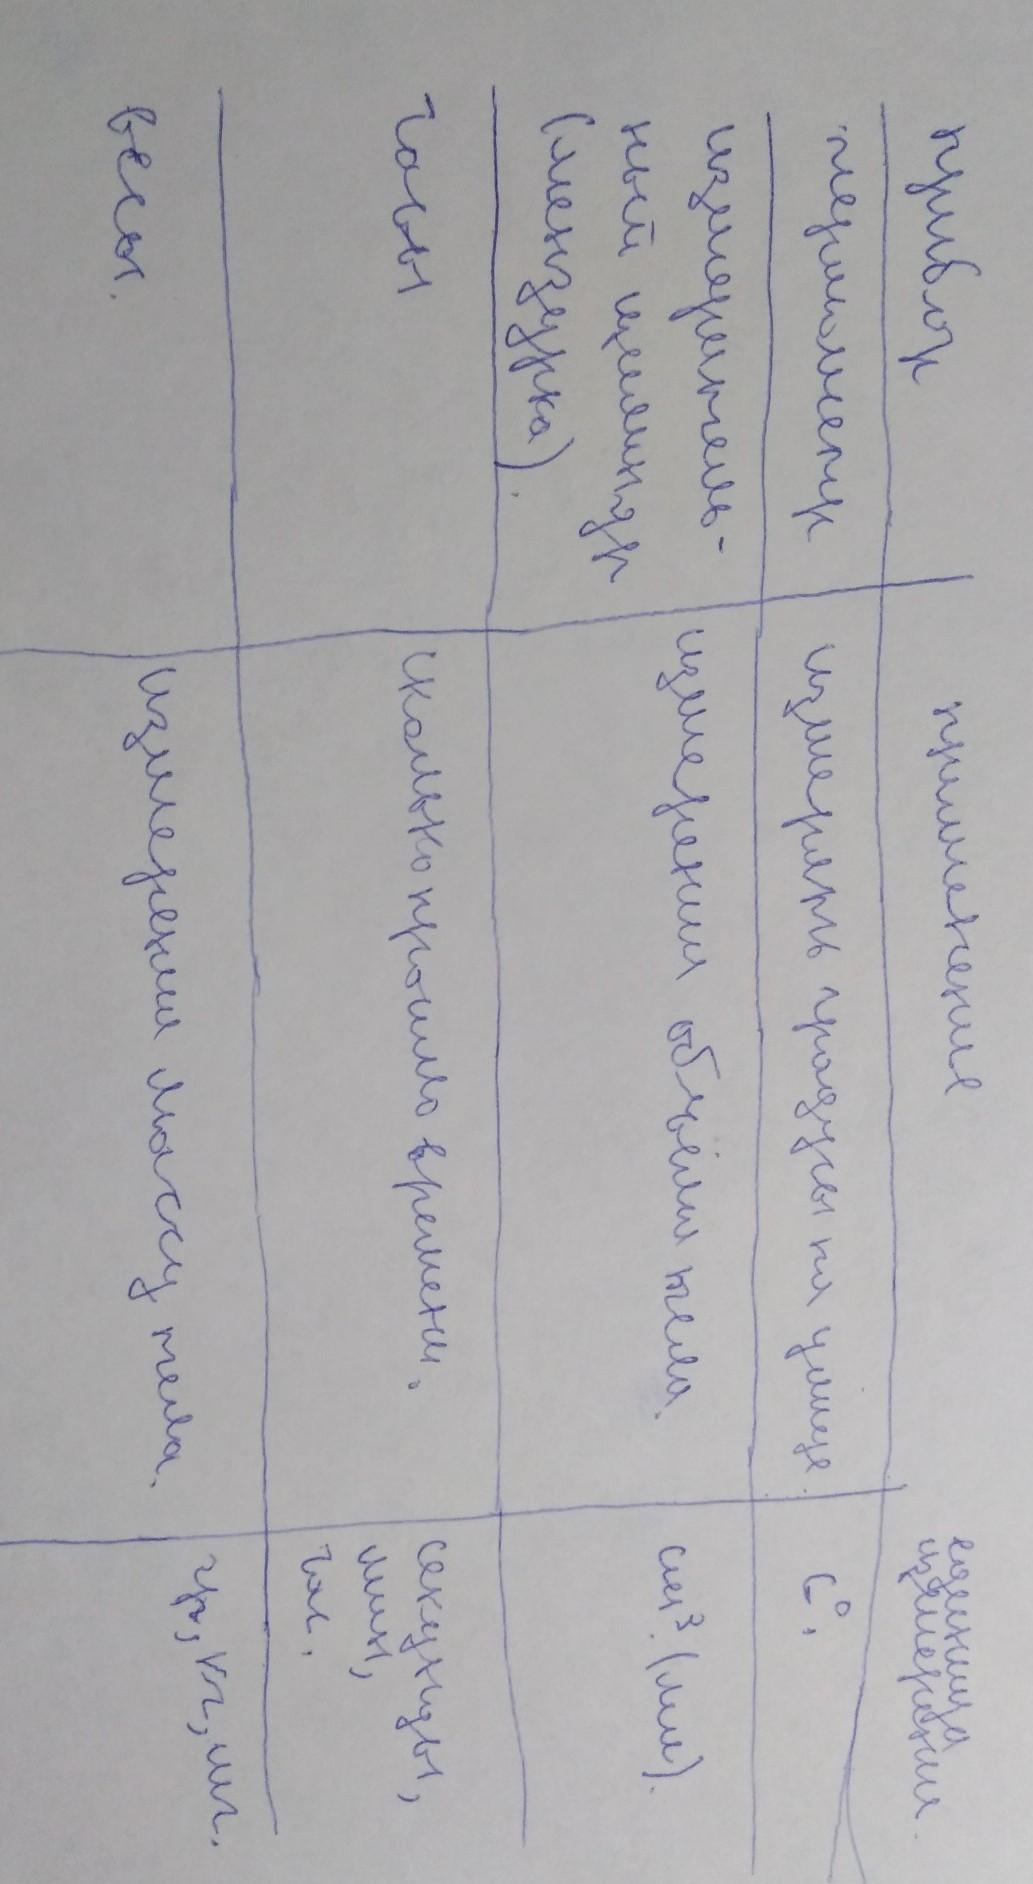 прибор
применение
еденица
измерения.
термометр
измерять градусы на улице.
С°.
измеритель-
ный цилиндр
(мензурка).
измерения объёма тела.
см³. (мл).
часы
сколько прошло времени.
секунды,
мин,
час.
весы.
измерения массу тела.
гр, кг, мг.